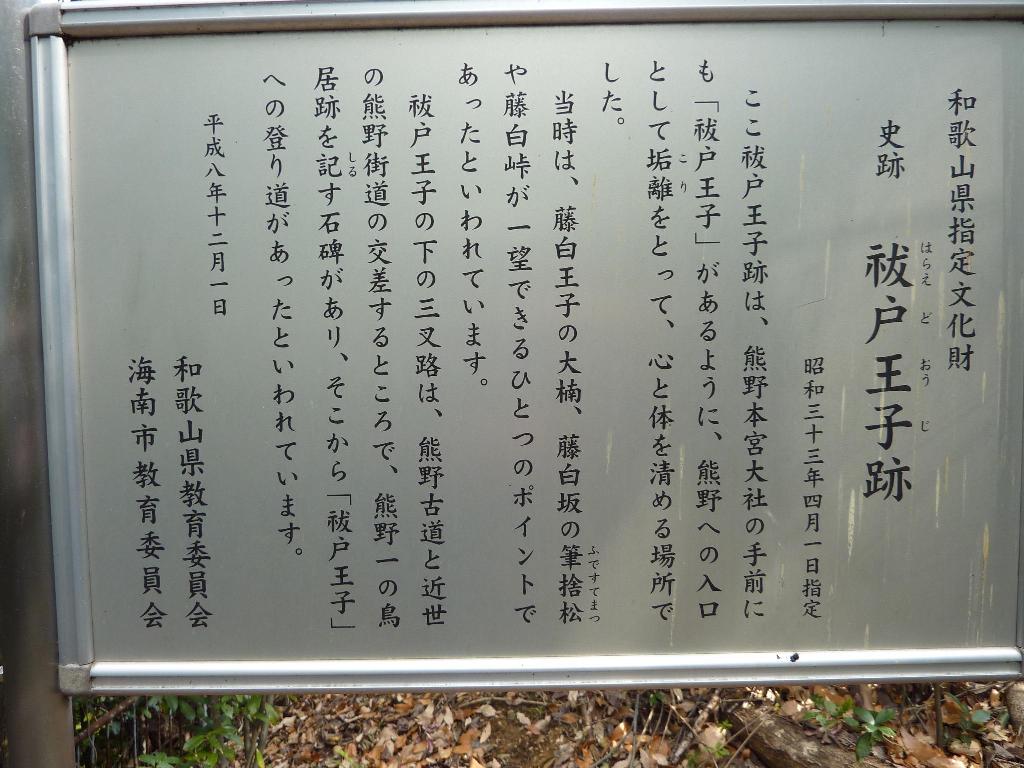 和歌山県指定文化財
史跡 祓戸王子跡
はらえ ど おう じ
昭和三十三年四月一日指定
ここ祓戸王子跡は、熊野本宮大社の手前に
も「祓戸王子」があるように、熊野への入口
として垢離をとって、心と体を清める場所で
こ り
した。
当時は、藤白王子の大楠、藤白坂の筆捨松
ふですてまつ
や藤白峠が一望できるひとつのポイントで
あったといわれています。
祓戸王子の下の三叉路は、熊野古道と近世
の熊野街道の交差するところで、熊野一の鳥
居跡を記す石碑があり、そこから「祓戸王子」
しる
への登り道があったといわれています。
平成八年十二月一日
和歌山県教育委員会
海南市教育委員会